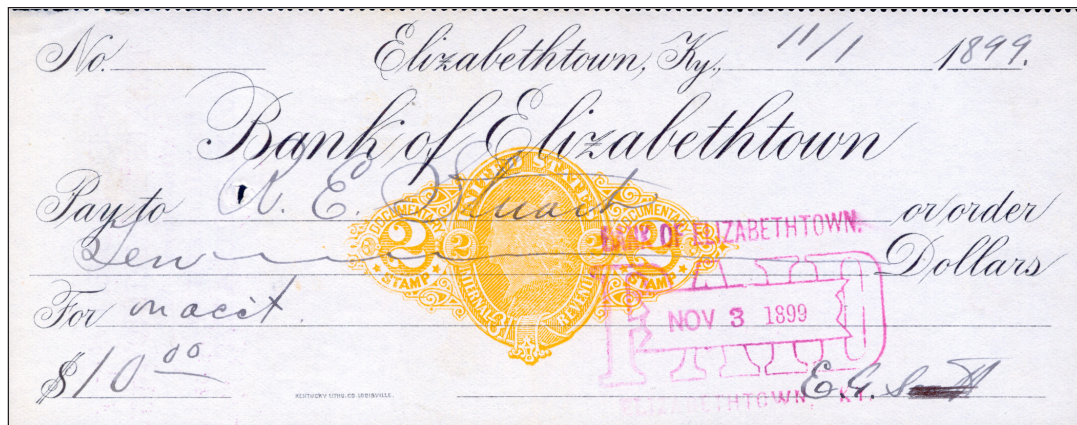 No. Elizabethtown, Ky., 11/1 1899.
Bank of Elizabethtown
Pay to R. E. Stuart or order
Ten Dollars
For on acct.
$10 00
E. G.
UNITED STATES
DOCUMENTARY DOCUMENTARY
2 2 2 2
STAMP STAMP
INTERNAL REVENUE
BANK OF ELIZABETHTOWN.
PAID
NOV 3 1899
ELIZABETHTOWN, KY.
KENTUCKY LITHO. CO. LOUISVILLE.